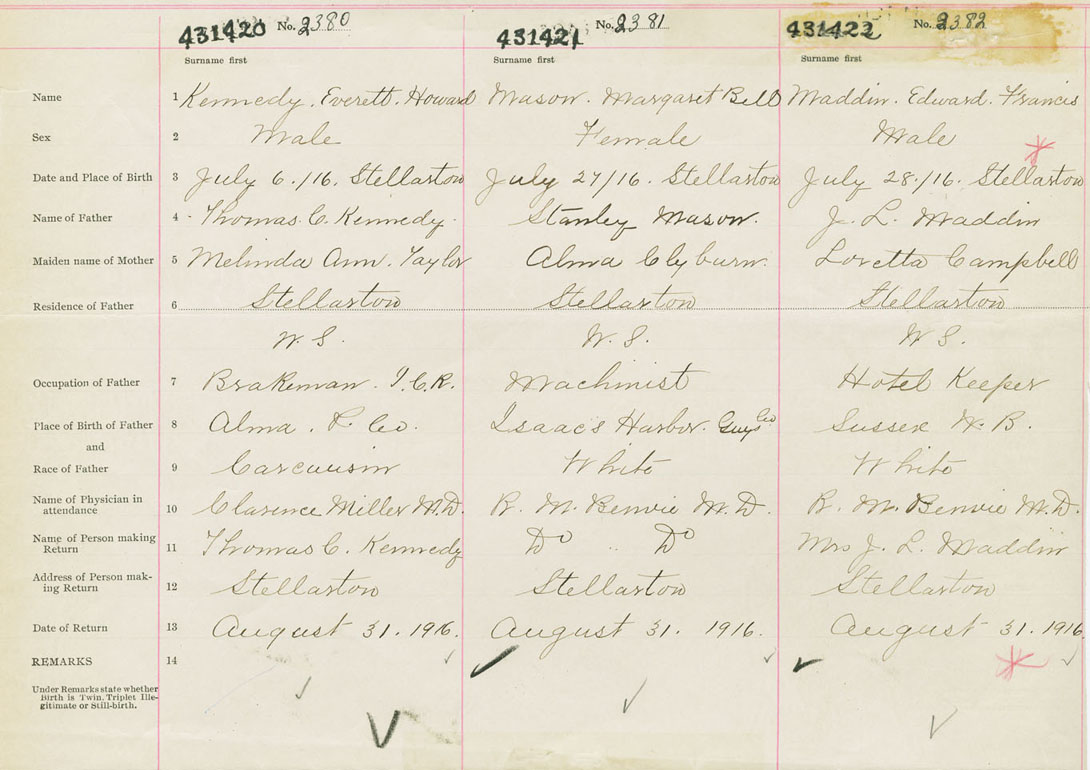 431420 No. 2380 431421 No. 2381 431422 No. 2382
Surname first Surname first Surname first
Name 1 Kennedy. Everett. Howard Mason. Margaret Bell Maddin. Edward. Francis
Sex 2 Male Female Male
Date and Place of Birth 3 July 6./16. Stellarton July 27/16. Stellarton July 28./16. Stellarton
Name of Father 4 Thomas. C. Kennedy. Stanley Mason. J. L. Maddin
Maiden name of Mother 5 Melinda Ann. Taylor Alma Clyburn. Loretta Campbell
Residence of Father 6 Stellarton Stellarton Stellarton
N. S. N. S. N S.
Occupation of Father 7 Brakeman. I. C. R. Machinist Hotel Keeper
Place of Birth of Father 8 Alma. P. Co. Isaac's Harbor. Guys Co Sussex N. B.
and
Race of Father 9 White White
Name of Physician in
attendance 10 Clarence Miller M.D. R. M. Benvie M.D. R. M. Benvie M.D.
Name of Person making
Return 11 Thomas C. Kennedy Do " Do Mrs J. L. Maddin
Address of Person mak-
ing Return 12 Stellarton Stellarton Stellarton
Date of Return 13 August 31. 1916. August 31. 1916. August 31. 1916
REMARKS 14
Under Remarks state whether
Birth is Twin, Triplet Ille-
gitimate or Still-birth.